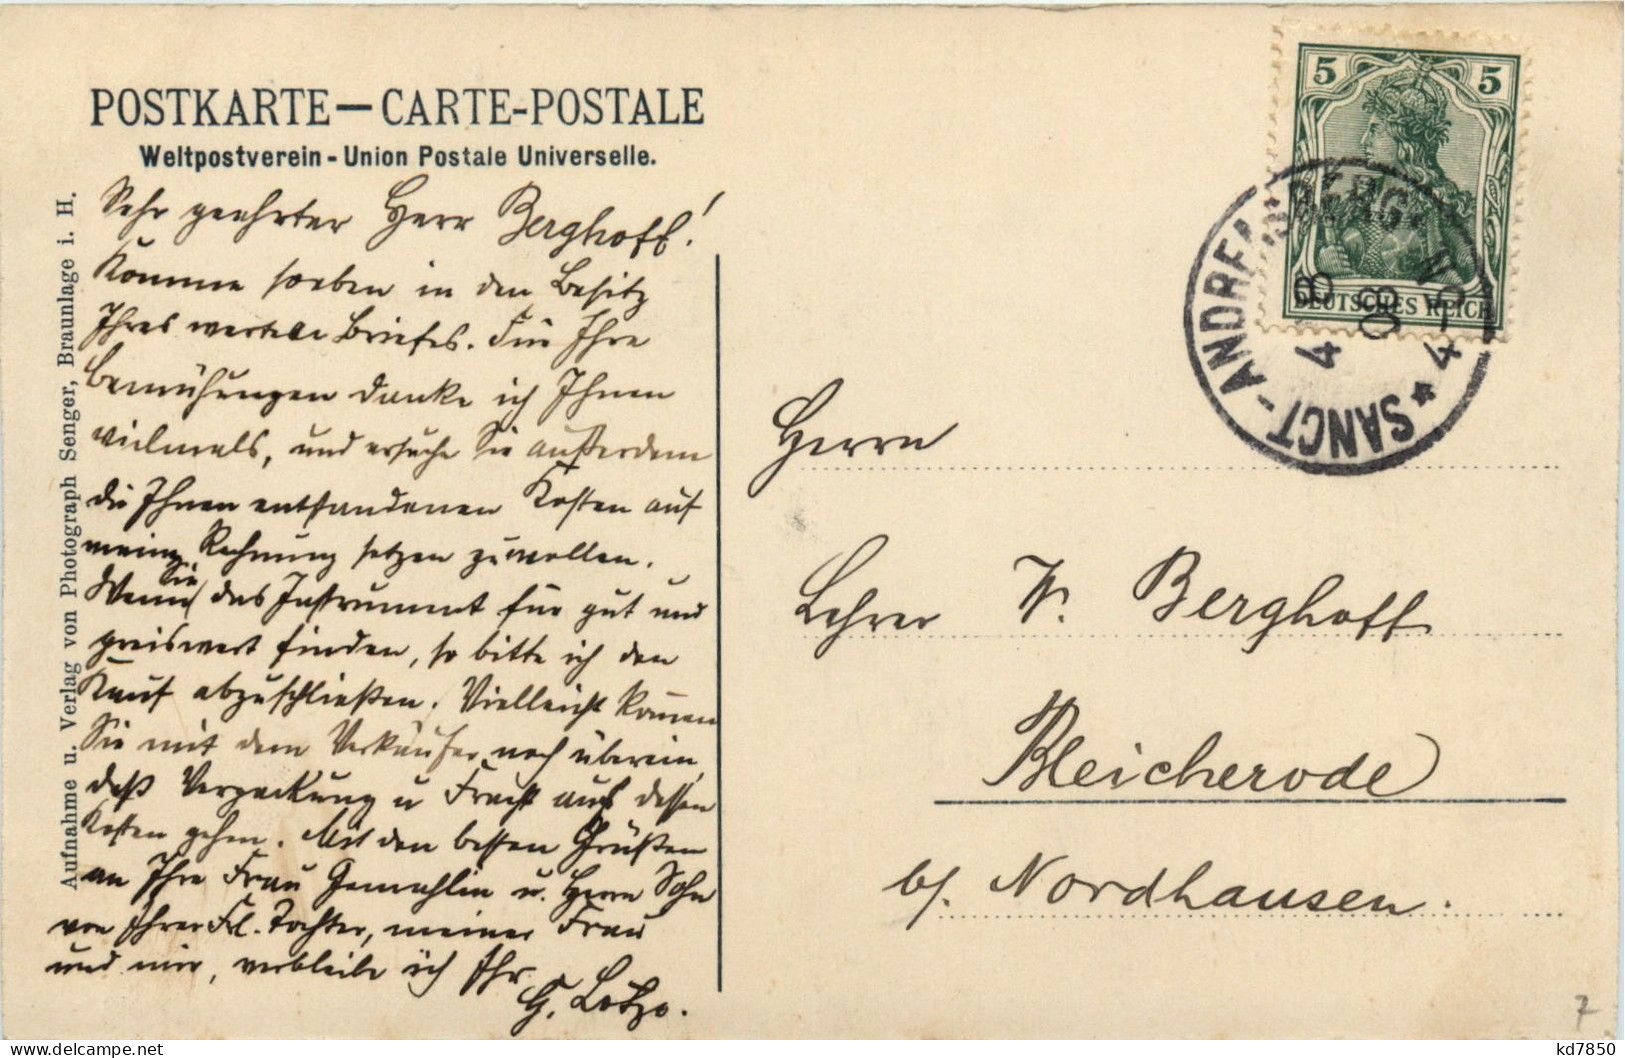 POSTKARTE — CARTE-POSTALE
Weltpostverein - Union Postale Universelle.
Aufnahme u. Verlag von Photograph Senger, Braunlage i. H.
Sehr geehrter Herr Berghoff!
Komme soeben in den Besitz
Ihres werten Briefes. Für Ihre
Bemühungen danke ich Ihnen
vielmals, und ersuche Sie außerdem
die Ihnen entstandenen Kosten auf
meine Rechnung setzen zu wollen.
Wenn Sie das Instrument für gut und
preiswert finden, so bitte ich den
Kauf abzuschließen. Vielleicht kommen
Sie mit dem Verkäufer noch überein,
daß Verpackung u Fracht auf dessen
Kosten gehen. Mit den besten Grüßen
an Ihre Frau Gemahlin u. Herrn Sohn
von Ihrer Frl. Tochter, meiner Frau
und mir, verbleibe ich Ihr
G.
5 5
DEUTSCHES REICH
SANCT-ANDREASBERG
4 8 08
4-5N
Herrn
Lehrer W. Berghoff
Bleicherode
b/. Nordhausen.
7
kd7850